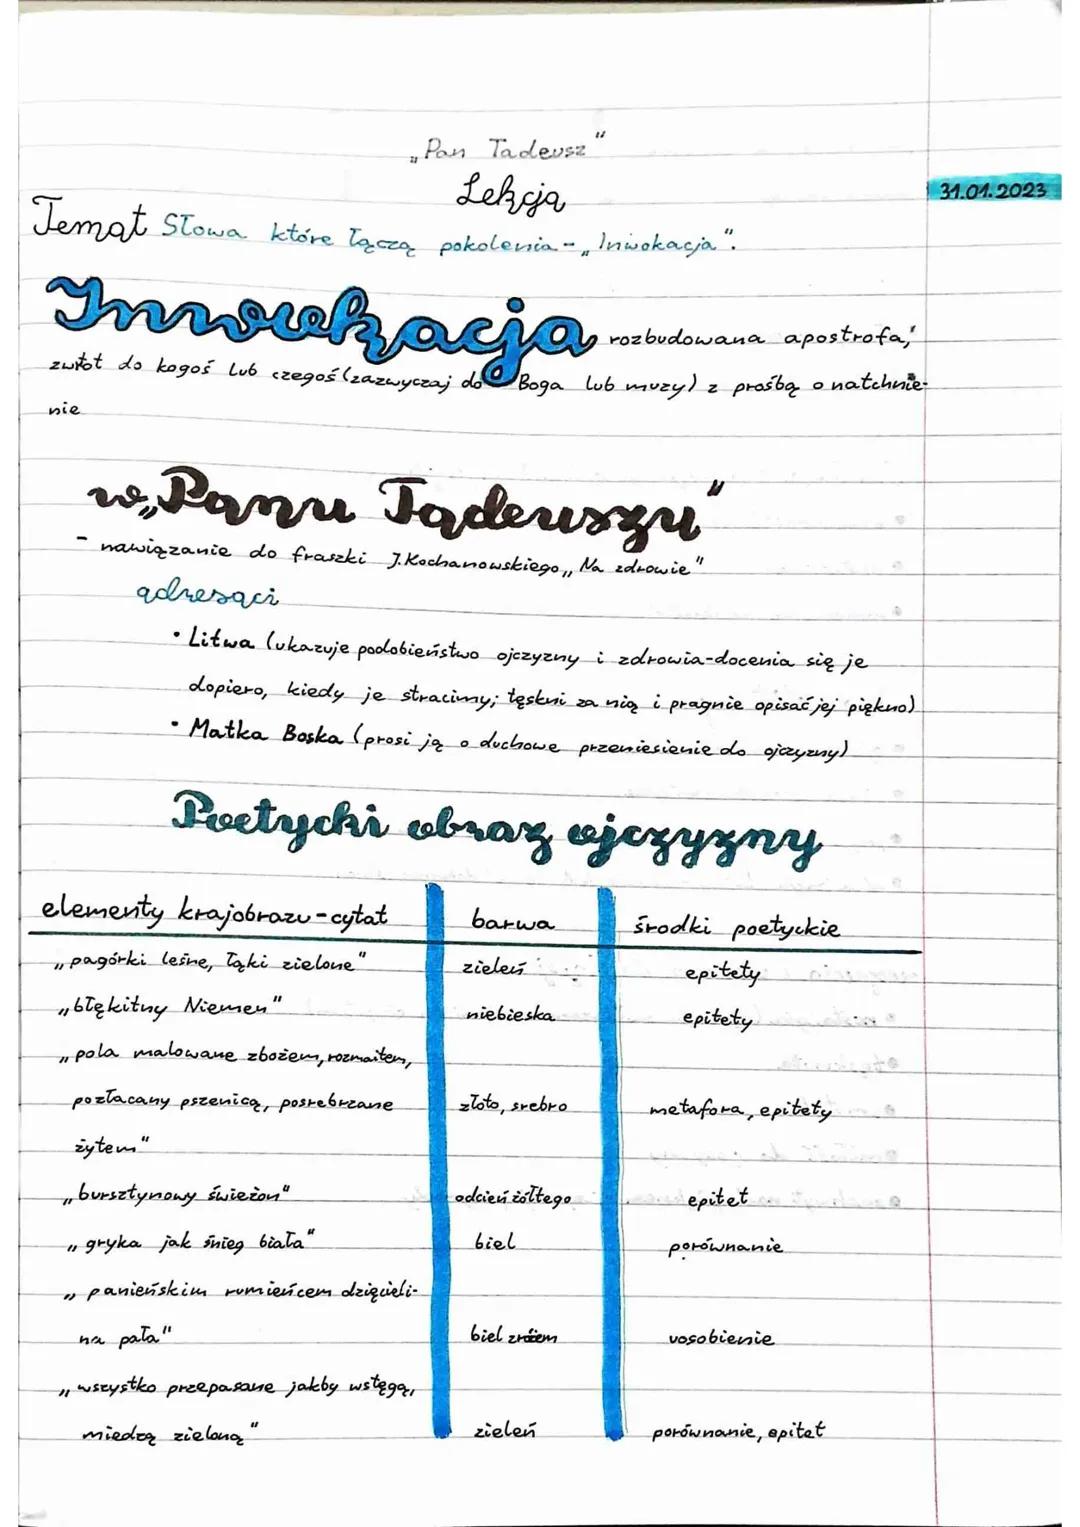 „Pan Tadeusz"
Lekcja
31.01.2023
Temat Słowa które łączą pokolenia - „Inwokacja".
Inwokacja rozbudowana apostrofa,
zwrot do kogoś lub czegoś (zazwyczaj do Boga lub muzy) z prośbą o natchnie-
nie
w „Panu Tadeuszu"
- nawiązanie do fraszki J.Kochanowskiego „Na zdrowie"
adresaci
• Litwa (ukazuje podobieństwo ojczyzny i zdrowia-docenia się je
dopiero, kiedy je stracimy; tęskni za nią i pragnie opisać jej piękno)
• Matka Boska (prosi ją o duchowe przeniesienie do ojczyzny)
Poetycki obraz ojczyzny
elementy krajobrazu - cytat barwa środki poetyckie
„pagórki leśne, łąki zielone" zieleń epitety
„błękitny Niemen" niebieska epitety
„pola malowane zbożem, rozmaitem,
pozłacany pszenicą, posrebrzane złoto, srebro metafora, epitety
żytem"
„bursztynowy świeżop" odcień żółtego epitet
„gryka jak śnieg biała" biel porównanie
„panieńskim rumieńcem dzięcieli-
na pała" biel z uosobienie
„wszystko przepasane jakby wstęgą,
miedzą zieloną" zieleń porównanie, epitet